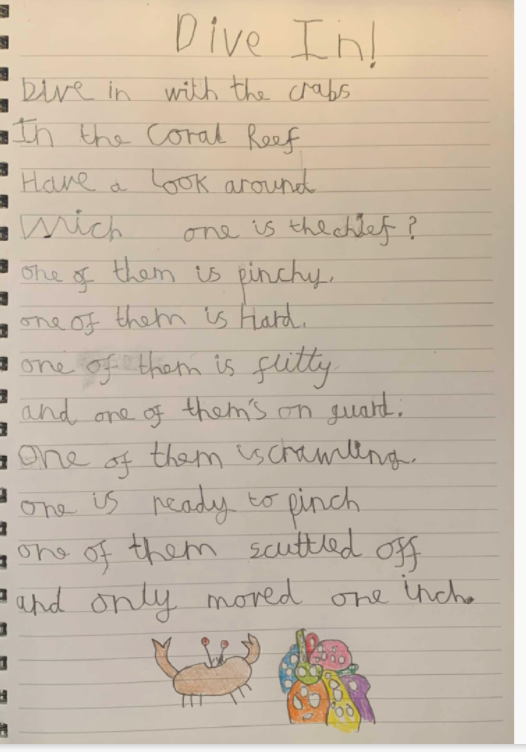 Dive In!
Dive in with the crabs
In the Coral Reef
Have a look around
Wich one is the chief?
one of them is pinchy.
one of them is Hard.
one of them is flitty
and one of them's on guard.
One of them is crawling.
one is ready to pinch
one of them scuttled off
and only moved one inch.